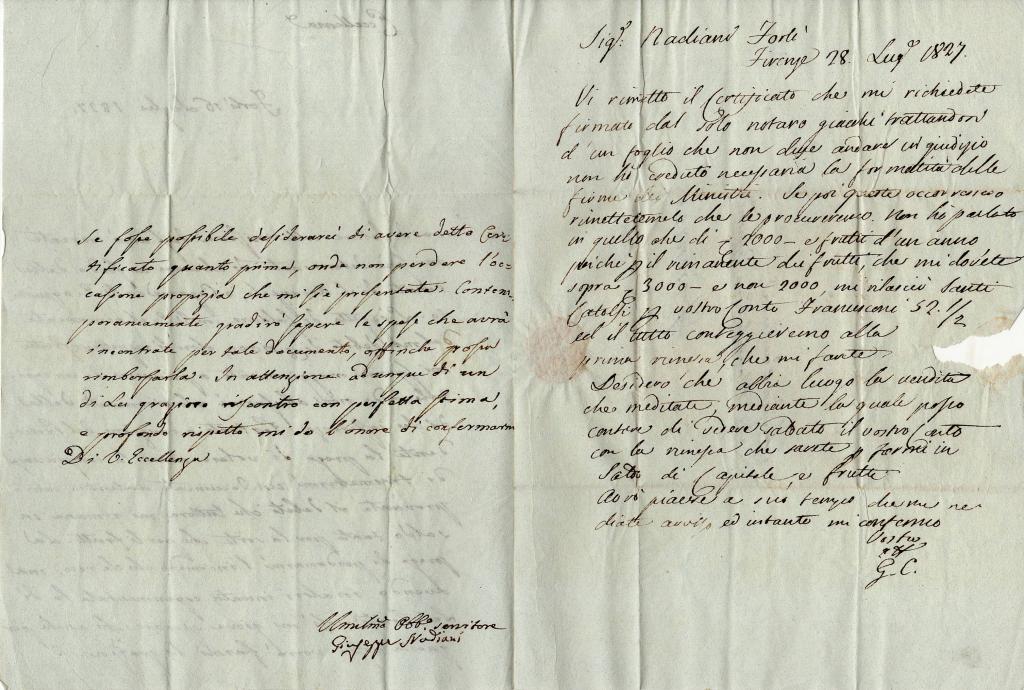 Se fosse possibile desidererei di avere detto Cer-
tificato quanto prima, onde non perdere l'oc-
casione propizia che mi si è presentata. Contem-
poraneamente gradirò sapere le spese che avrà
incontrate per tale documento, affinchè possa
rimborsarla. In attenzione adunque di un
di Lei grazioso riscontro con perfetta stima,
e profondo rispetto mi do l'onore di confermarmi
Di V. Eccellenza
Umilmo Obbo servitore
Giuseppe Nadiani
Sigr: Nadiani Forlì
Firenze 28. Lugo 1827.
Vi rimetto il Certificato che mi richiedete
firmato dal solo notaro giacchè trattandosi
d'un foglio che non deve andare in giudizio
non ho creduto necessaria la formalità delle
firme dei Ministri. Se poi queste occorressero
rimettetemelo che le procureremo. Non ho parlato
in quello che di 2000 e frutti d'un anno
poichè il rimanente dei frutti, che mi dovete
sopra 3000 e non 2000, mi rilasciò Santi
vostro Conto Francesconi 52.1/2
ed il tutto conteggieremo alla
prima rimessa, che mi farete.
Desidero che abbia luogo la vendita
che meditate, mediante la quale posso
contare di vedere saldato il vostro Conto
con la rimessa che sarete farmi in
Saldo di Capitale, e frutti
Avrò piacere a suo tempo che me ne
diate avviso, ed intanto mi confermo
Vostro
G. C.